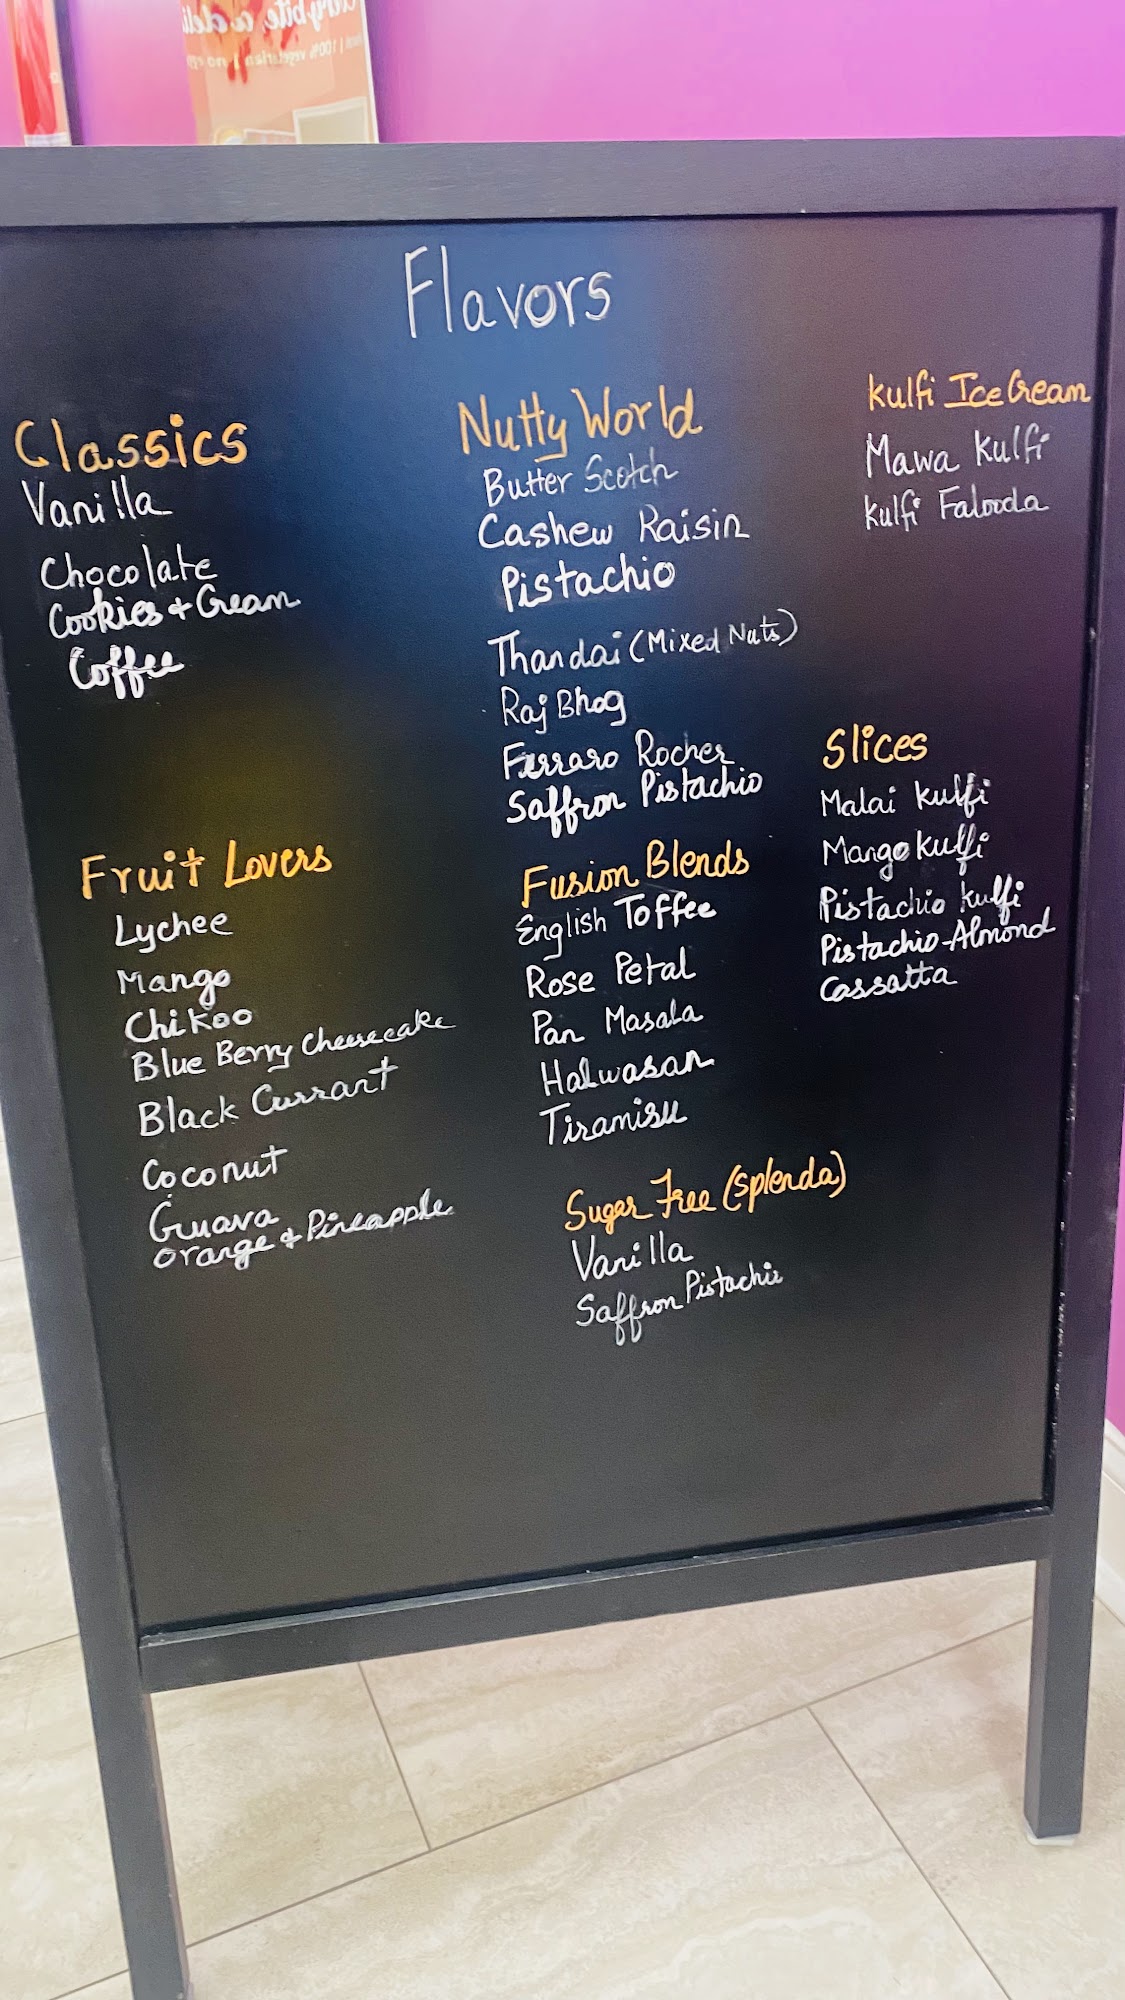 Flavors
Classics
Vanilla
Chocolate
Cookies + Cream
Coffee
Fruit Lovers
Lychee
Mango
Chikoo
Blue Berry Cheesecake
Black Currant
Coconut
Guava
Orange + Pineapple
Nutty World
Butter Scotch
Cashew Raisin
Pistachio
Thandai (Mixed Nuts)
Raj Bhog
Ferraro Rocher
Saffron Pistachio
Fusion Blends
English Toffee
Rose Petal
Pan Masala
Halwasan
Tiramisu
Sugar Free (Splenda)
Vanilla
Saffron Pistachio
Kulfi Ice Cream
Mawa Kulfi
Kulfi Falooda
Slices
Malai Kulfi
Mango Kulfi
Pistachio Kulfi
Pistachio-Almond
Cassatta